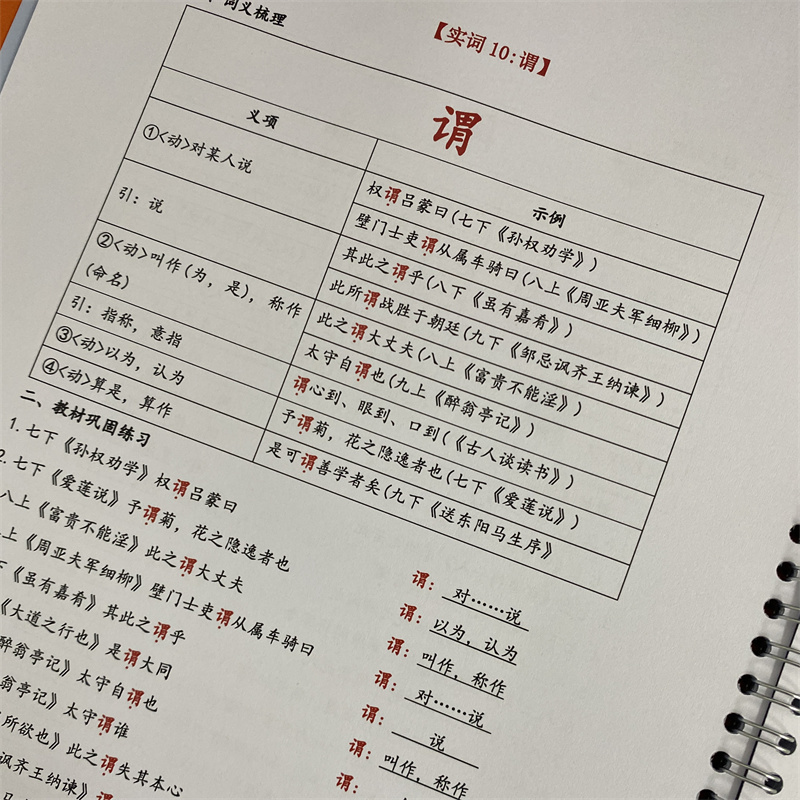 词义梳理
【实词10:谓】
谓
义项
示例
①<动>对某人说
权谓吕蒙曰(七下《孙权劝学》)
壁门士吏谓从属车骑曰(八上《周亚夫军细柳》)
引:说
其此之谓乎(八下《虽有嘉肴》)
②<动>叫作(为,是),称作
(命名)
此所谓战胜于朝廷(九下《邹忌讽齐王纳谏》)
此之谓大丈夫(八上《富贵不能淫》)
太守自谓也(九上《醉翁亭记》)
引:指称,意指
谓心到、眼到、口到(《古人谈读书》)
③<动>以为,认为
予谓菊,花之隐逸者也(七下《爱莲说》)
④<动>算是,算作
是可谓善学者矣(九下《送东阳马生序》
二、教材巩固练习
1.七下《孙权劝学》权谓吕蒙曰
谓:对……说
2.七下《爱莲说》予谓菊,花之隐逸者也
谓:以为,认为
八上《富贵不能淫》此之谓大丈夫
谓:叫作,称作
上《周亚夫军细柳》壁门士吏谓从属车骑曰
谓:对……说
下《虽有嘉肴》其此之谓乎
谓:说
《大道之行也》是谓大同
谓:叫作,称作
醉翁亭记》太守自谓也
谓:
翁亭记》太守谓谁
所欲也》此之谓失其本心
讽齐王纳谏》